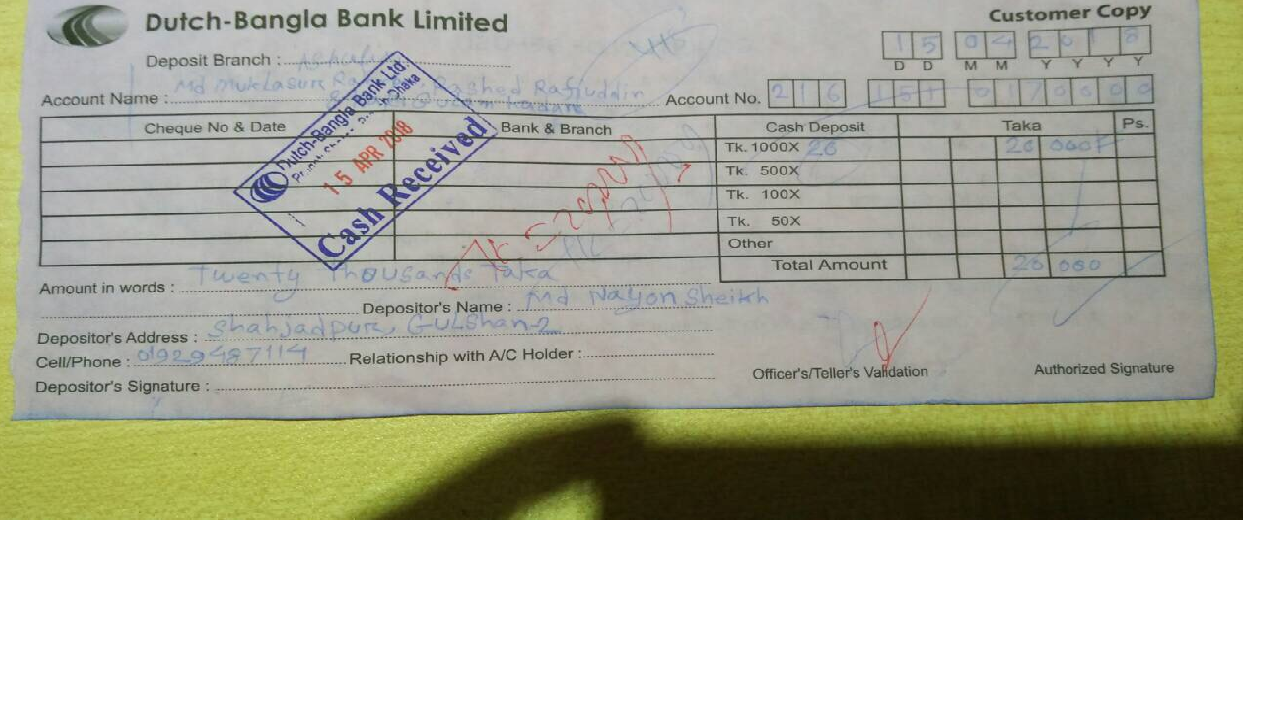 Dutch-Bangla Bank Limited
Customer Copy
Deposit Branch :
15 04 2018
D D M M Y Y Y Y
Account Name : Md Muklasur Rashed Rafiuddin
Account No. 216 151
Cheque No & Date Bank & Branch Cash Deposit Taka Ps.
Tk. 1000X 20 20 000/-
Tk. 500X
Tk. 100X
Tk. 50X
Other
Total Amount 20 000
Dutch-Bangla Bank Ltd.
Dhaka
15 APR 2018
Cash Received
Amount in words : Twenty Thousands Taka
Depositor's Name : Md Nayon Sheikh
Depositor's Address : Shahjadpur, GULShan-2
Cell/Phone : 01929487114 Relationship with A/C Holder :
Depositor's Signature :
Officer's/Teller's Validation
Authorized Signature